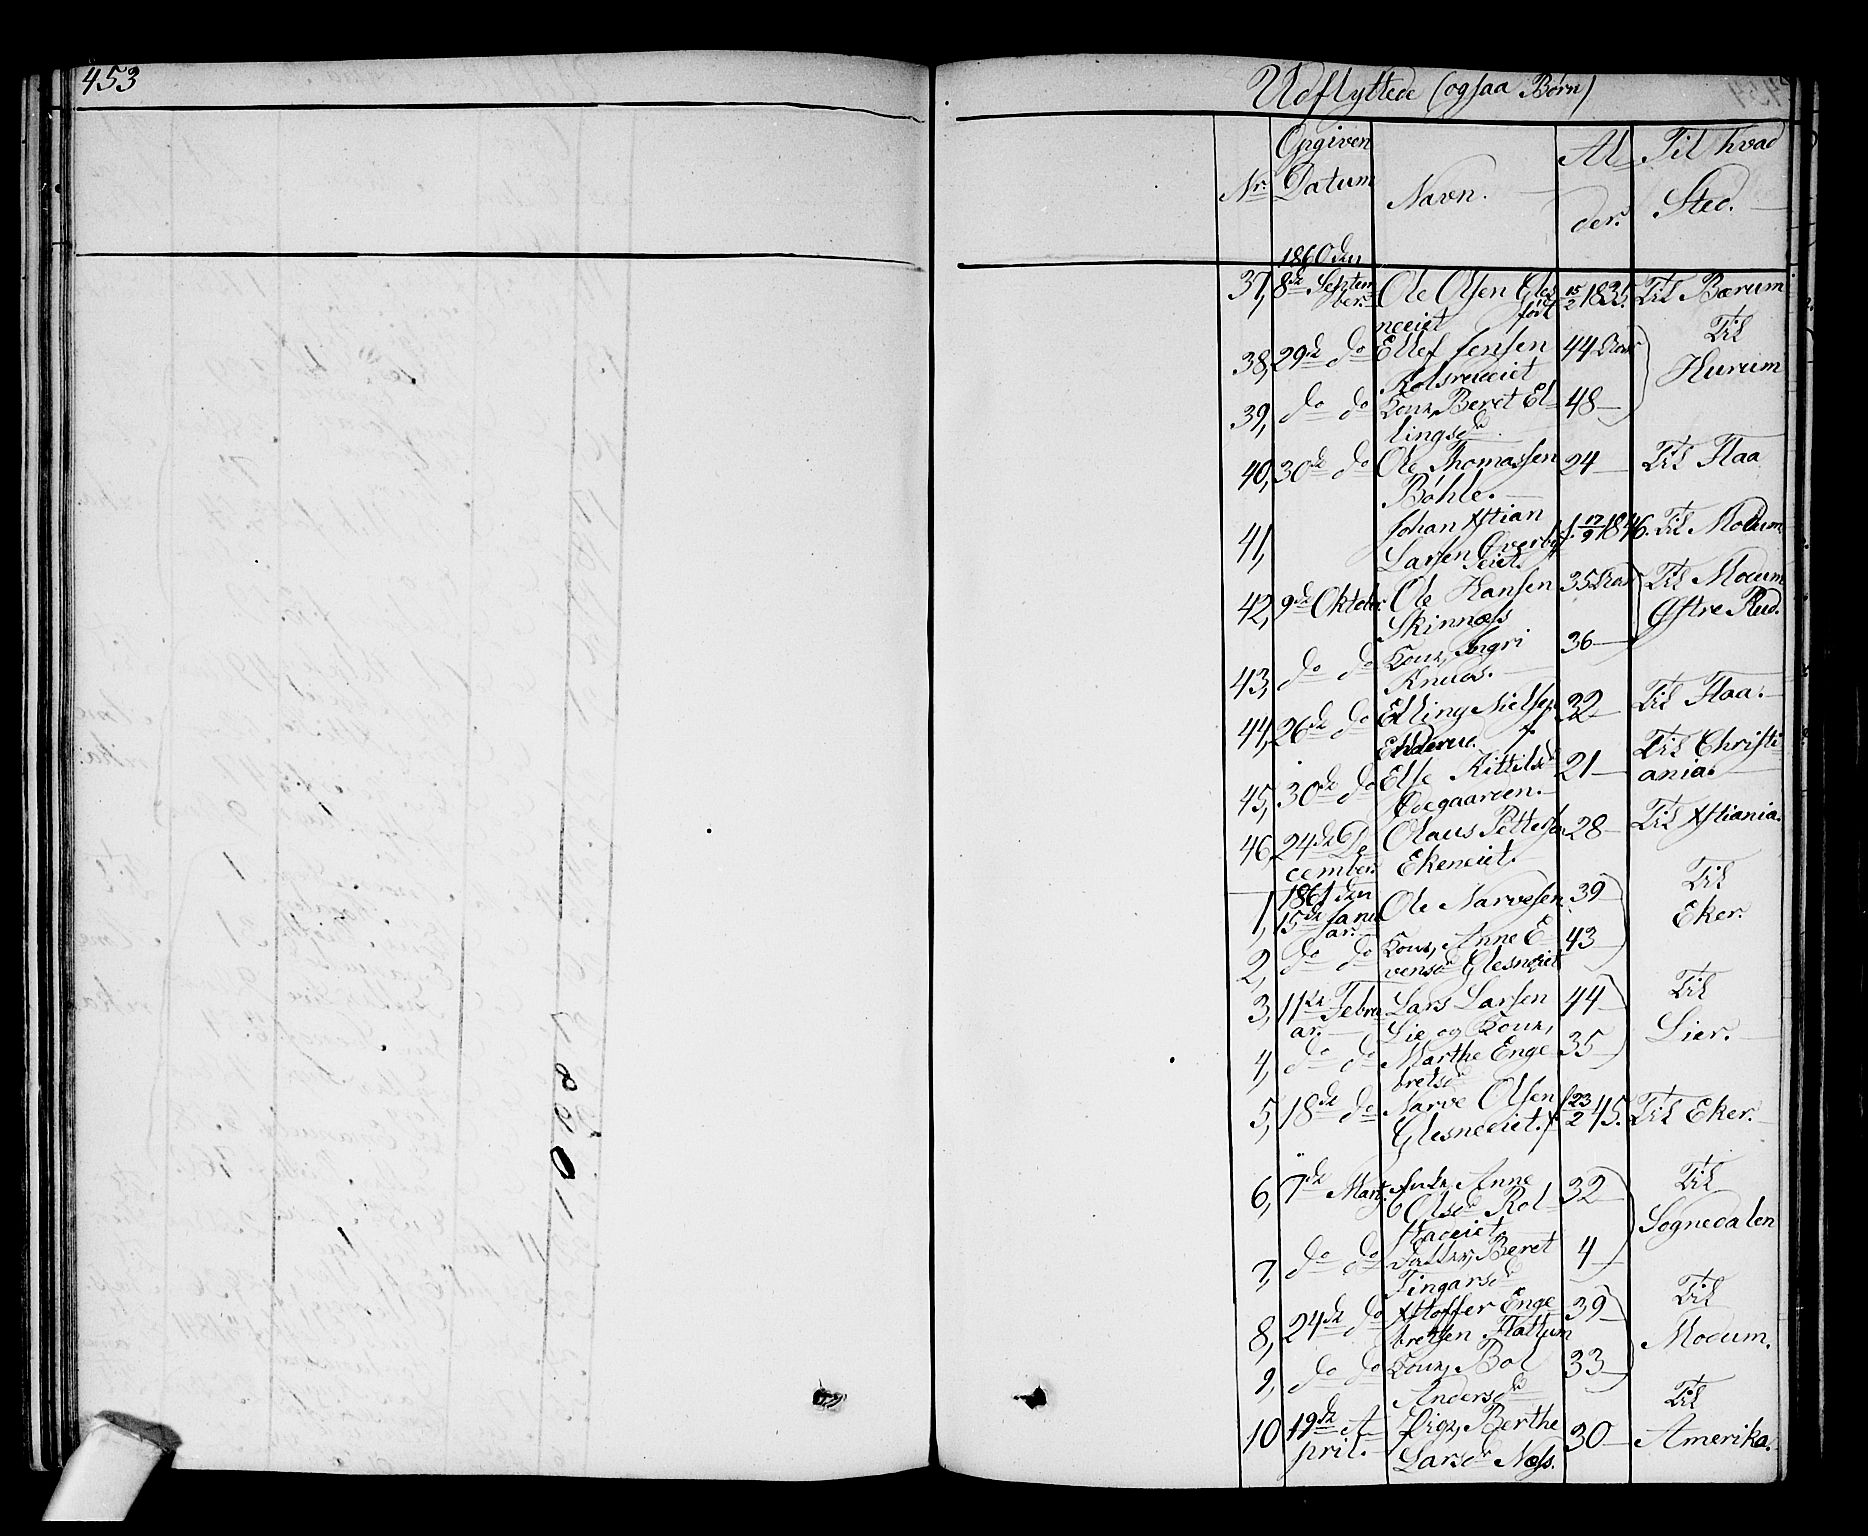 453
Udflyttede (ogsaa Børn)
Nr. Opgiven Datum Navn. Alder. Til hvad Sted.
1860 den
37, 8de September Ole Olsen Glesneeiet født 15/2 1835. Til Bærum
38, 29de do Ellef Jensen Rolsrudeiet 44 Aar Til Hurum
39, do do Kone, Beret Ellingsdr 48
40, 30de do Ole Thomassen Bøhle. 24 Til Flaa
41, Johan Xstian Larsen Overbyeiet. f. 17/9 1846. Til Modum
42, 9de Oktober Ole Hansen Skinnæss 35 Aar Til Modum Østre Rud.
43, do do Kone, Ingri Knuds. 36
44, 26de do Elling Nielsen 32 Til Flaa.
45, 30de do Else Kittilsdr Ødegaarden. 21 Til Christiania.
46, 24de December. Olaus Pettersen Ekeneiet. 28 Til Xstiania.
1861 den
1, 15de Januar. Ole Narvesen 39 Til Eker.
2, do do Kone, Anne Evensdr Glesneeiet 43
3, 11de Februar. Lars Larsen Lie og Kone, 44 Til Lier.
4, do do Marthe Engebretsdr 35
5, 18de do Narve Olsen Glesneeiet. f 23/2 45. Til Eker.
6, 7de Marts Anne Olsdr Rolstadeiet, 32 Til Sognedalen
7, do do Datter, Beret Tingarsdr 4
8, 24de do Xstoffer Engebretsen Flattum 39 Til Modum.
9, do do Kone, Bol Andersdr 33
10 19de April. Pige, Berthe Larsdr Næss. 30 Til Amerika.